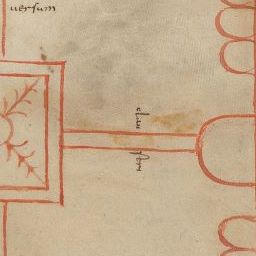 uersum
clau stri